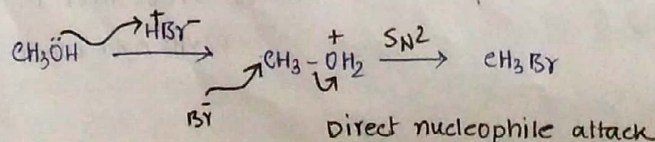 CH₃ÖH ⟶ H⁺Br⁻ CH₃-O⁺H₂ SN2 ⟶ CH₃Br
Br⁻
Direct nucleophile attack